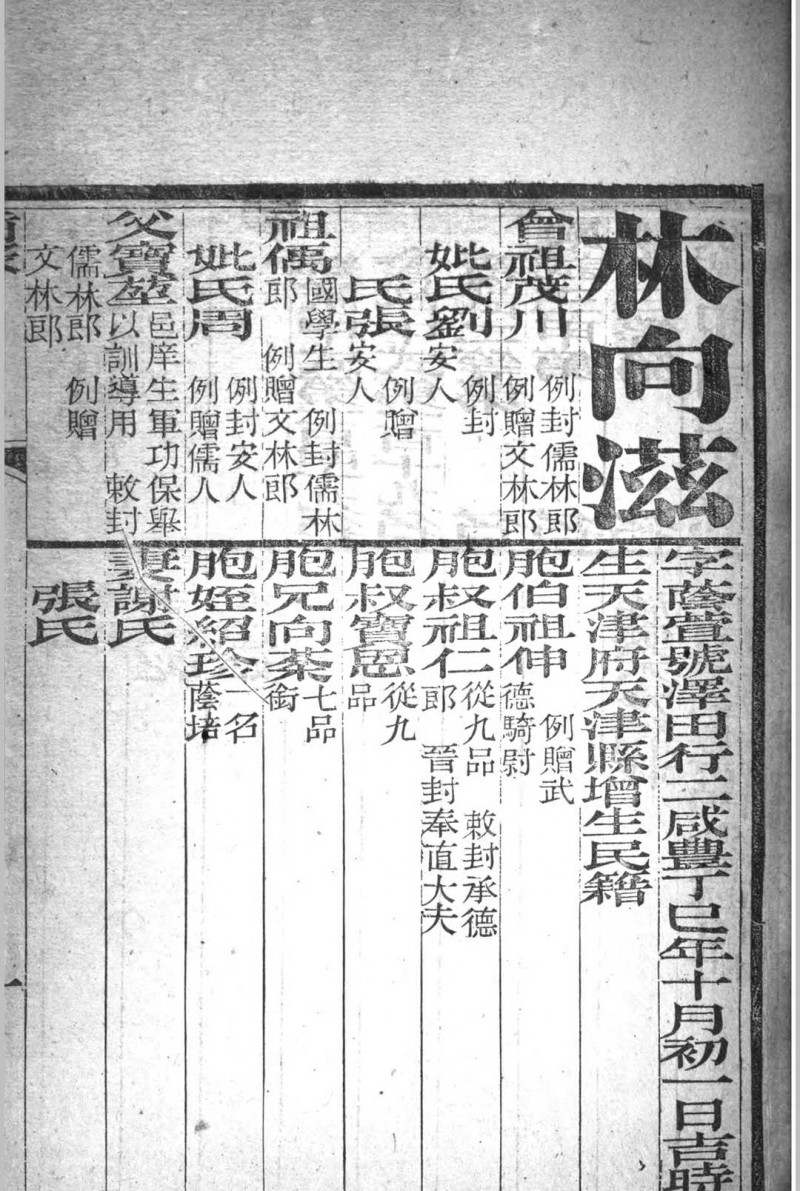 林向滋
字蔭萱號澤田行二咸豐丁巳年十月初一日吉時
生天津府天津縣增生民籍
曾祖茂川
例封儒林郎
例贈文林郎
妣氏劉
例封
安人
氏張
例贈
安人
祖偶
國學生 例封儒林
郎 例贈文林郎
妣氏周
例封安人
例贈儒人
父寶堃
邑庠生軍功保舉
以訓導用 敕封
儒林郎 例贈
文林郎
胞伯祖伸
例贈武
德騎尉
胞叔祖仁
從九品 敕封承德
郎 晉封奉直大夫
胞叔寶恩
從九
品
胞兄向棻
七品
銜
胞姪紹珍
一名
蔭培
妻謝氏
張氏